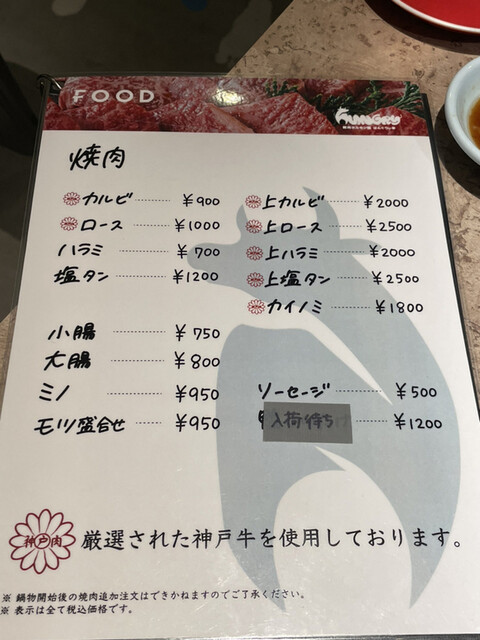 FOOD
HUNGRY
焼肉
カルビ ¥900
ロース ¥1000
ハラミ ¥700
塩タン ¥1200
上カルビ ¥2000
上ロース ¥2500
上ハラミ ¥2000
上塩タン ¥2500
カイノミ ¥1800
小腸 ¥750
大腸 ¥800
ミノ ¥950
モツ盛合せ ¥950
ソーセージ ¥500
入荷待ち ¥1200
神戸肉 厳選された神戸牛を使用しております。
※ 鍋物開始後の焼肉追加注文はできかねますのでご了承ください。
※ 表示は全て税込価格です。